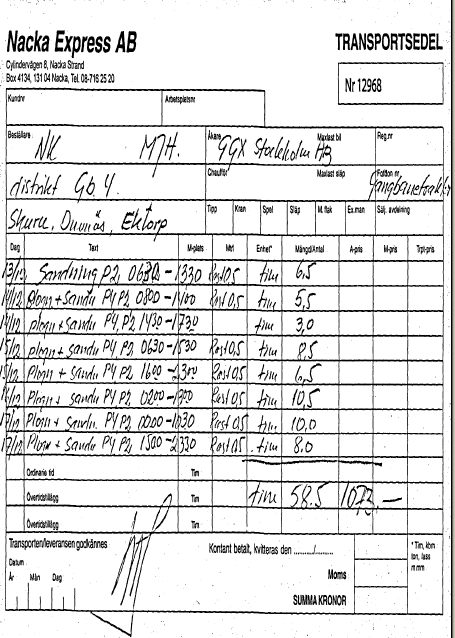 Nacka Express AB
TRANSPORTSEDEL
Cylindervägen 8, Nacka Strand
Box 4134, 131 04 Nacka, Tel. 08-716 25 20
Nr 12968
Kundnr Arbetsplatsnr
Beställare Åkare Maxlast bil Reg.nr
NK MJH. GGX Stockholm AB
Chaufför Maxlast släp Fordon nr
distrikt Gb. 4
Tipp Kran Spel Släp M. flak Ex.man Sälj. avdelning
Skuru, Duvnäs, Ektorp
Dag Text M-plats Mtrl Enhet* Mängd/Antal A-pris M-pris Trpt-pris
13/12 Sandning P2 0630-1330 Rast 0,5 tim 6,5
14/12 plogn + sandn P4 P2 0800-1400 Rast 0,5 tim 5,5
14/12 plogn + sandn P4, P2 1430-1730 tim 3,0
15/12 plogn + sandn P4 P2 0630-1530 Rast 0,5 tim 8,5
15/12 Plogn + sandn P4 P2 1600-2300 Rast 0,5 tim 6,5
Plogn + sandn P4 P2 0200-1300 Rast 0,5 tim 10,5
17/12 Plogn + Sandn P4 P2 0000-1030 Rast 0,5 tim 10,0
17/12 Plogn + Sandn P4 P2 1500-2330 Rast 0,5 tim 8.0
Ordinarie tid Tim
Övertidstillägg Tim tim 58.5 1073,-
Övertidstillägg Tim
Transporten/leveransen godkännes
Kontant betalt, kvitteras den ....../......
* Tim, kbm
ton, lass
m mm
Datum
År Mån Dag
Moms
SUMMA KRONOR